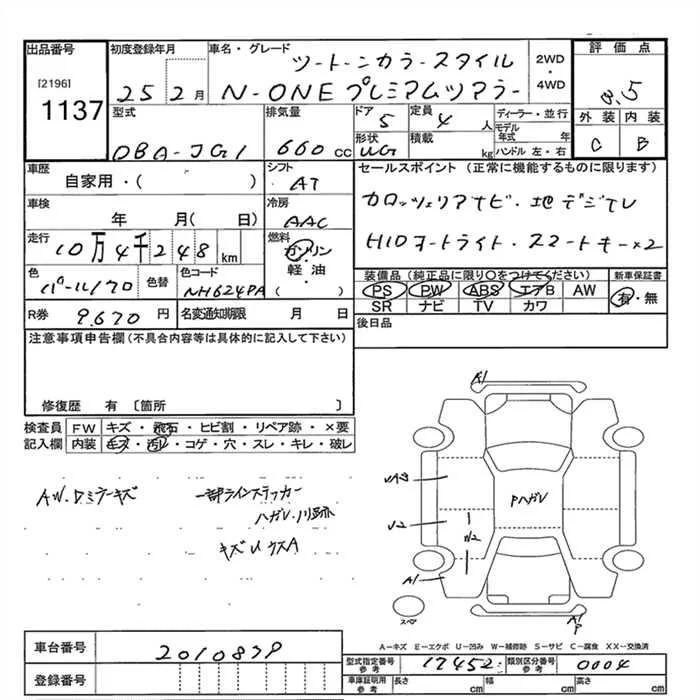 出品番号
[2196]
1137
初度登録年月
25 2月
車名・グレード
ツートーンカラースタイル
N-ONEプレミアムツアラー
2WD
・
4WD
評価点
3.5
外装 内装
C B
型式
DBA-JG1
排気量
660 cc
ドア
5
定員
4 人
形状
積載
kg
ディーラー・並行
モデル
年式 年
ハンドル 左・右
車歴
自家用・( )
シフト
AT
車検
年 月( 日)
冷房
AAC
走行
10万4千248 km
燃料
ガソリン
・
軽油
・
( )
色
パール/クロ
色替
色コード
NH624PA
R券 9.670 円
名変通知期限 月 日
セールスポイント(正常に機能するものに限ります)
カロッツェリアナビ・地デジTV
HIDヘッドライト・スマートキー×2
装備品(純正品に限り○をつけてください)
PS PW ABS エアB AW
SR ナビ TV カワ
新車保証書
有・無
後日品
注意事項申告欄(不具合内容等は具体的に記入して下さい)
修復歴 有〔箇所 〕
検査員
記入欄
FW キズ・飛石・ヒビ割・リペア跡・×要
内装 キズ・汚レ・コゲ・穴・スレ・キレ・破レ
AW.Dミラーキズ
一部ラインステッカー
ハガレ・
キズ
A1
Pハガレ
U2
W2
A1
スペア
A1
P
A-キズ E-エクボ U-凹み W-補修跡 S-サビ C-腐食 XX-交換済
車台番号
登録番号
型式指定番号
参考
17452
類別区分番号
参考
0004
車庫証明用
参考
長さ cm
幅 cm
高さ cm